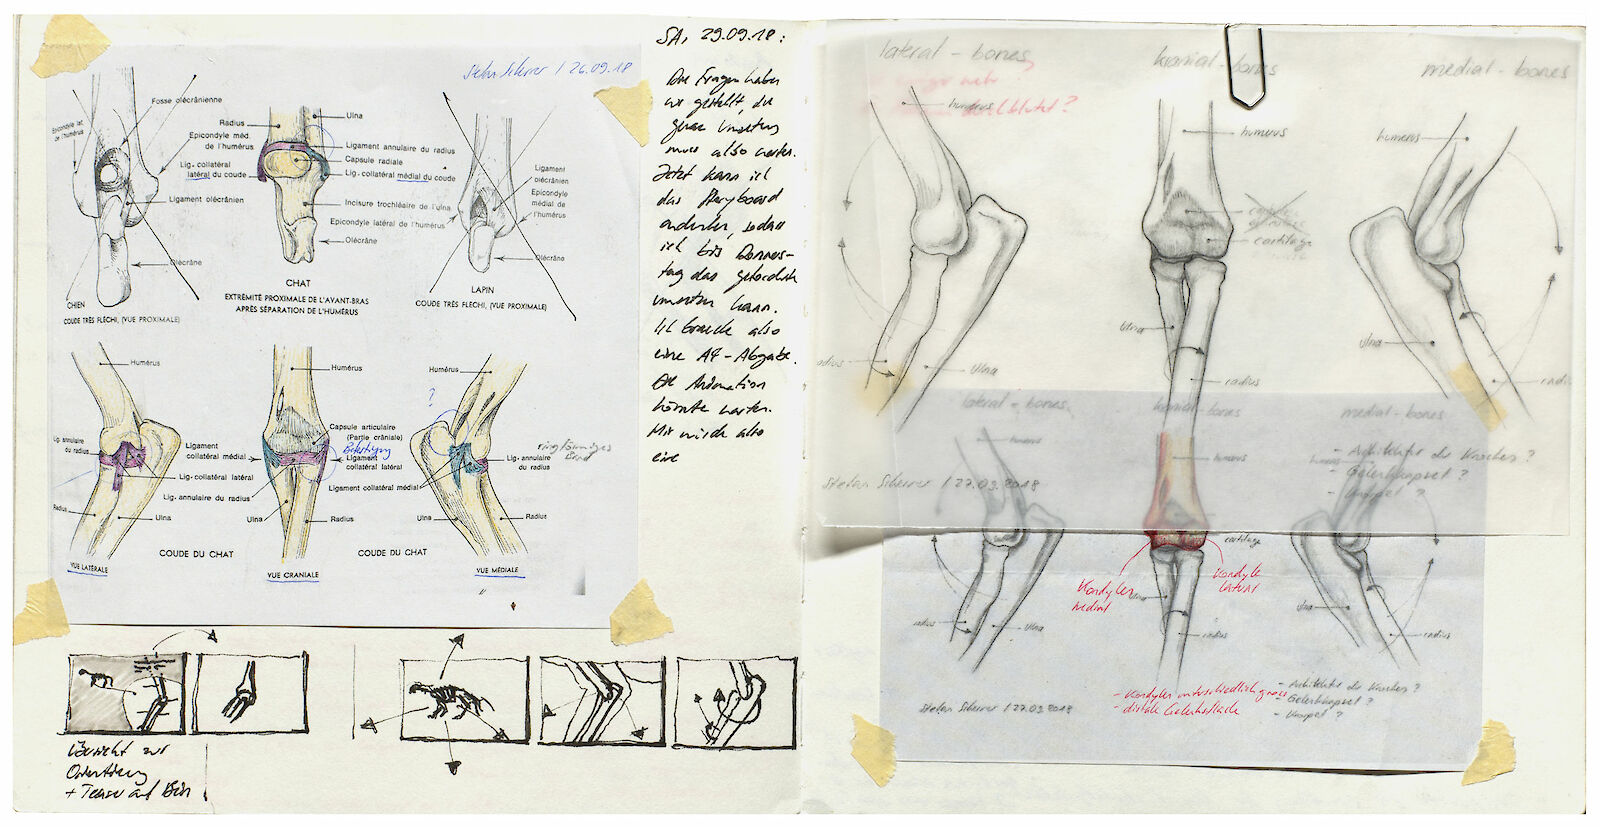 Stefan Scherrer / 26.09.18
Fosse olécrânienne
Radius
Ulna
Epicondyle lat.
de l'humérus
Epicondyle méd.
de l'humérus
Ligament annulaire du radius
Capsule radiale
Lig. collatéral
latéral du coude
Lig. collatéral médial du coude
Ligament
olécrânien
Ligament olécrânien
Incisure trochléaire de l'ulna
Epicondyle
médial de
l'humérus
Epicondyle latéral de l'humérus
Olécrâne
Olécrâne
Olécrâne
CHIEN
COUDE TRÈS FLÉCHI, (VUE PROXIMALE)
CHAT
EXTRÉMITÉ PROXIMALE DE L'AVANT-BRAS
APRÈS SÉPARATION DE L'HUMÉRUS
LAPIN
COUDE TRÈS FLÉCHI, (VUE PROXIMALE)
Humérus
Humérus
Humérus
?
Lig. annulaire
du radius
Ligament
collatéral médial
Capsule articulaire
(Partie crâniale)
Ligament
collatéral latéral
ringförmiges
Band
Lig. annulaire
du radius
Lig. collatéral latéral
Lig. annulaire du radius
Ligament collatéral médial
Radius
Ulna
Ulna
Radius
Ulna
Radius
COUDE DU CHAT
COUDE DU CHAT
VUE LATÉRALE
VUE CRANIALE
VUE MÉDIALE
SA, 29.09.18:
Die Fragen haben
wir gestellt, die
muss also warten.
Jetzt kann ich
das Storyboard
ändern, sodass
ich bis Donners-
tag das geforderte
umsetzen kann.
Ich brauche also
eine A4-Abgabe.
Die Animation
könnte warten.
Mir würde also
eine
Übersicht zur
Orientierung
+ Teaser auf
lateral - bones
kranial - bones
medial - bones
humerus
humerus
humerus
cartilage
Ulna
Ulna
radius
radius
Ulna
radius
lateral - bones
kranial - bones
medial - bones
humerus
humerus
- Architektur des Knochens?
- Gelenkkapsel?
- Knorpel?
Stefan Scherrer / 27.09.2018
cartilage
Kondylen
medial
Kondyle
lateral
radius
Ulna
Ulna
radius
Ulna
radius
- Kondylen unterschiedlich gross
- distale Gelenksfläche
- Architektur des Knochens?
- Gelenkkapsel?
- Knorpel?
Stefan Scherrer / 27.09.2018